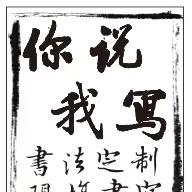 你说
我写
書法定制